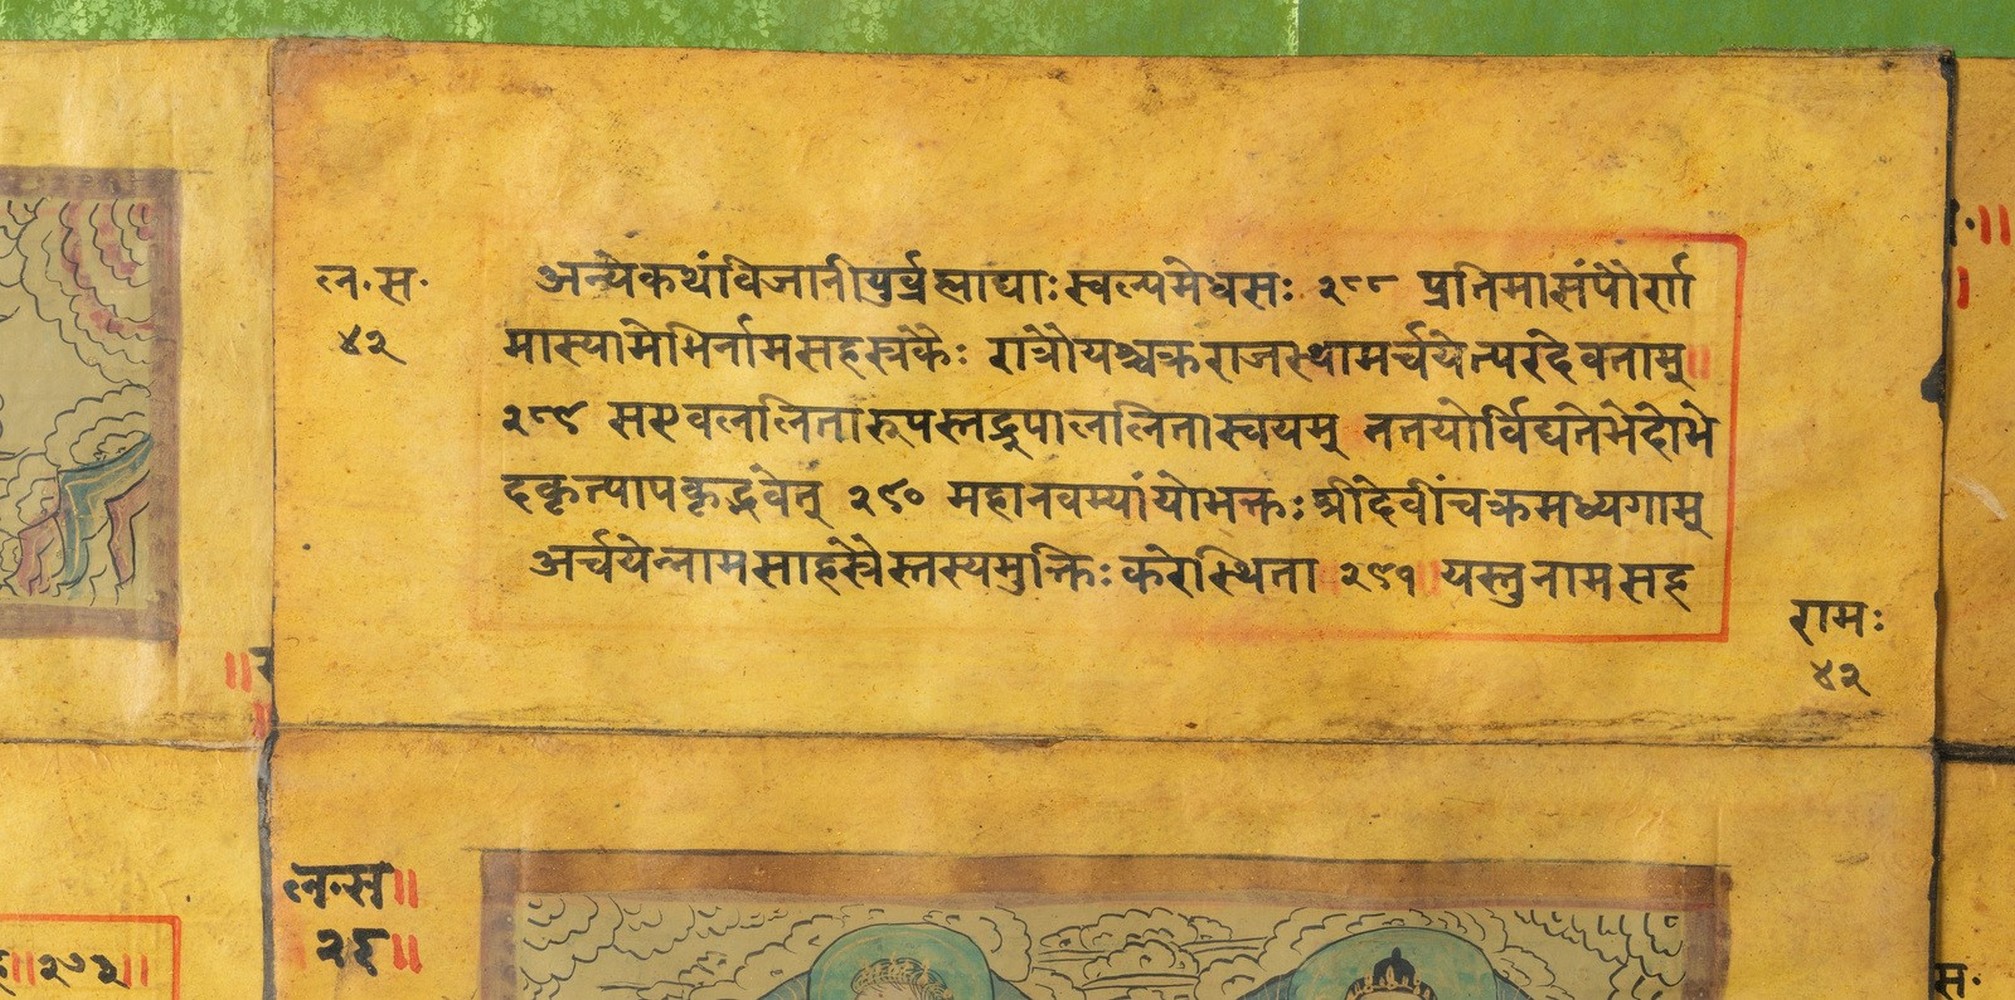 ल॰स॰
४२
अन्येकथंविजानीयुर्ब्रह्माद्याःस्वल्पमेधसः २८८ प्रतिमासंपौर्ण
मास्यामेभिर्नामसहस्रकैः रात्रौयश्चक्रराजस्थामर्चयेत्परदेवताम्॥
२८९ सएवललितारूपस्तद्रूपाललितास्वयम् नतयोर्विद्यतेभेदोभे
दकृत्पापकृद्भवेत् २९० महानवम्यांयोभक्तःश्रीदेवींचक्रमध्यगाम्
अर्चयेन्नामसाहस्रैस्तस्यमुक्तिःकरेस्थिता २९१ यस्तुनामसह
रामः
४२
ल॰स॥
२६॥